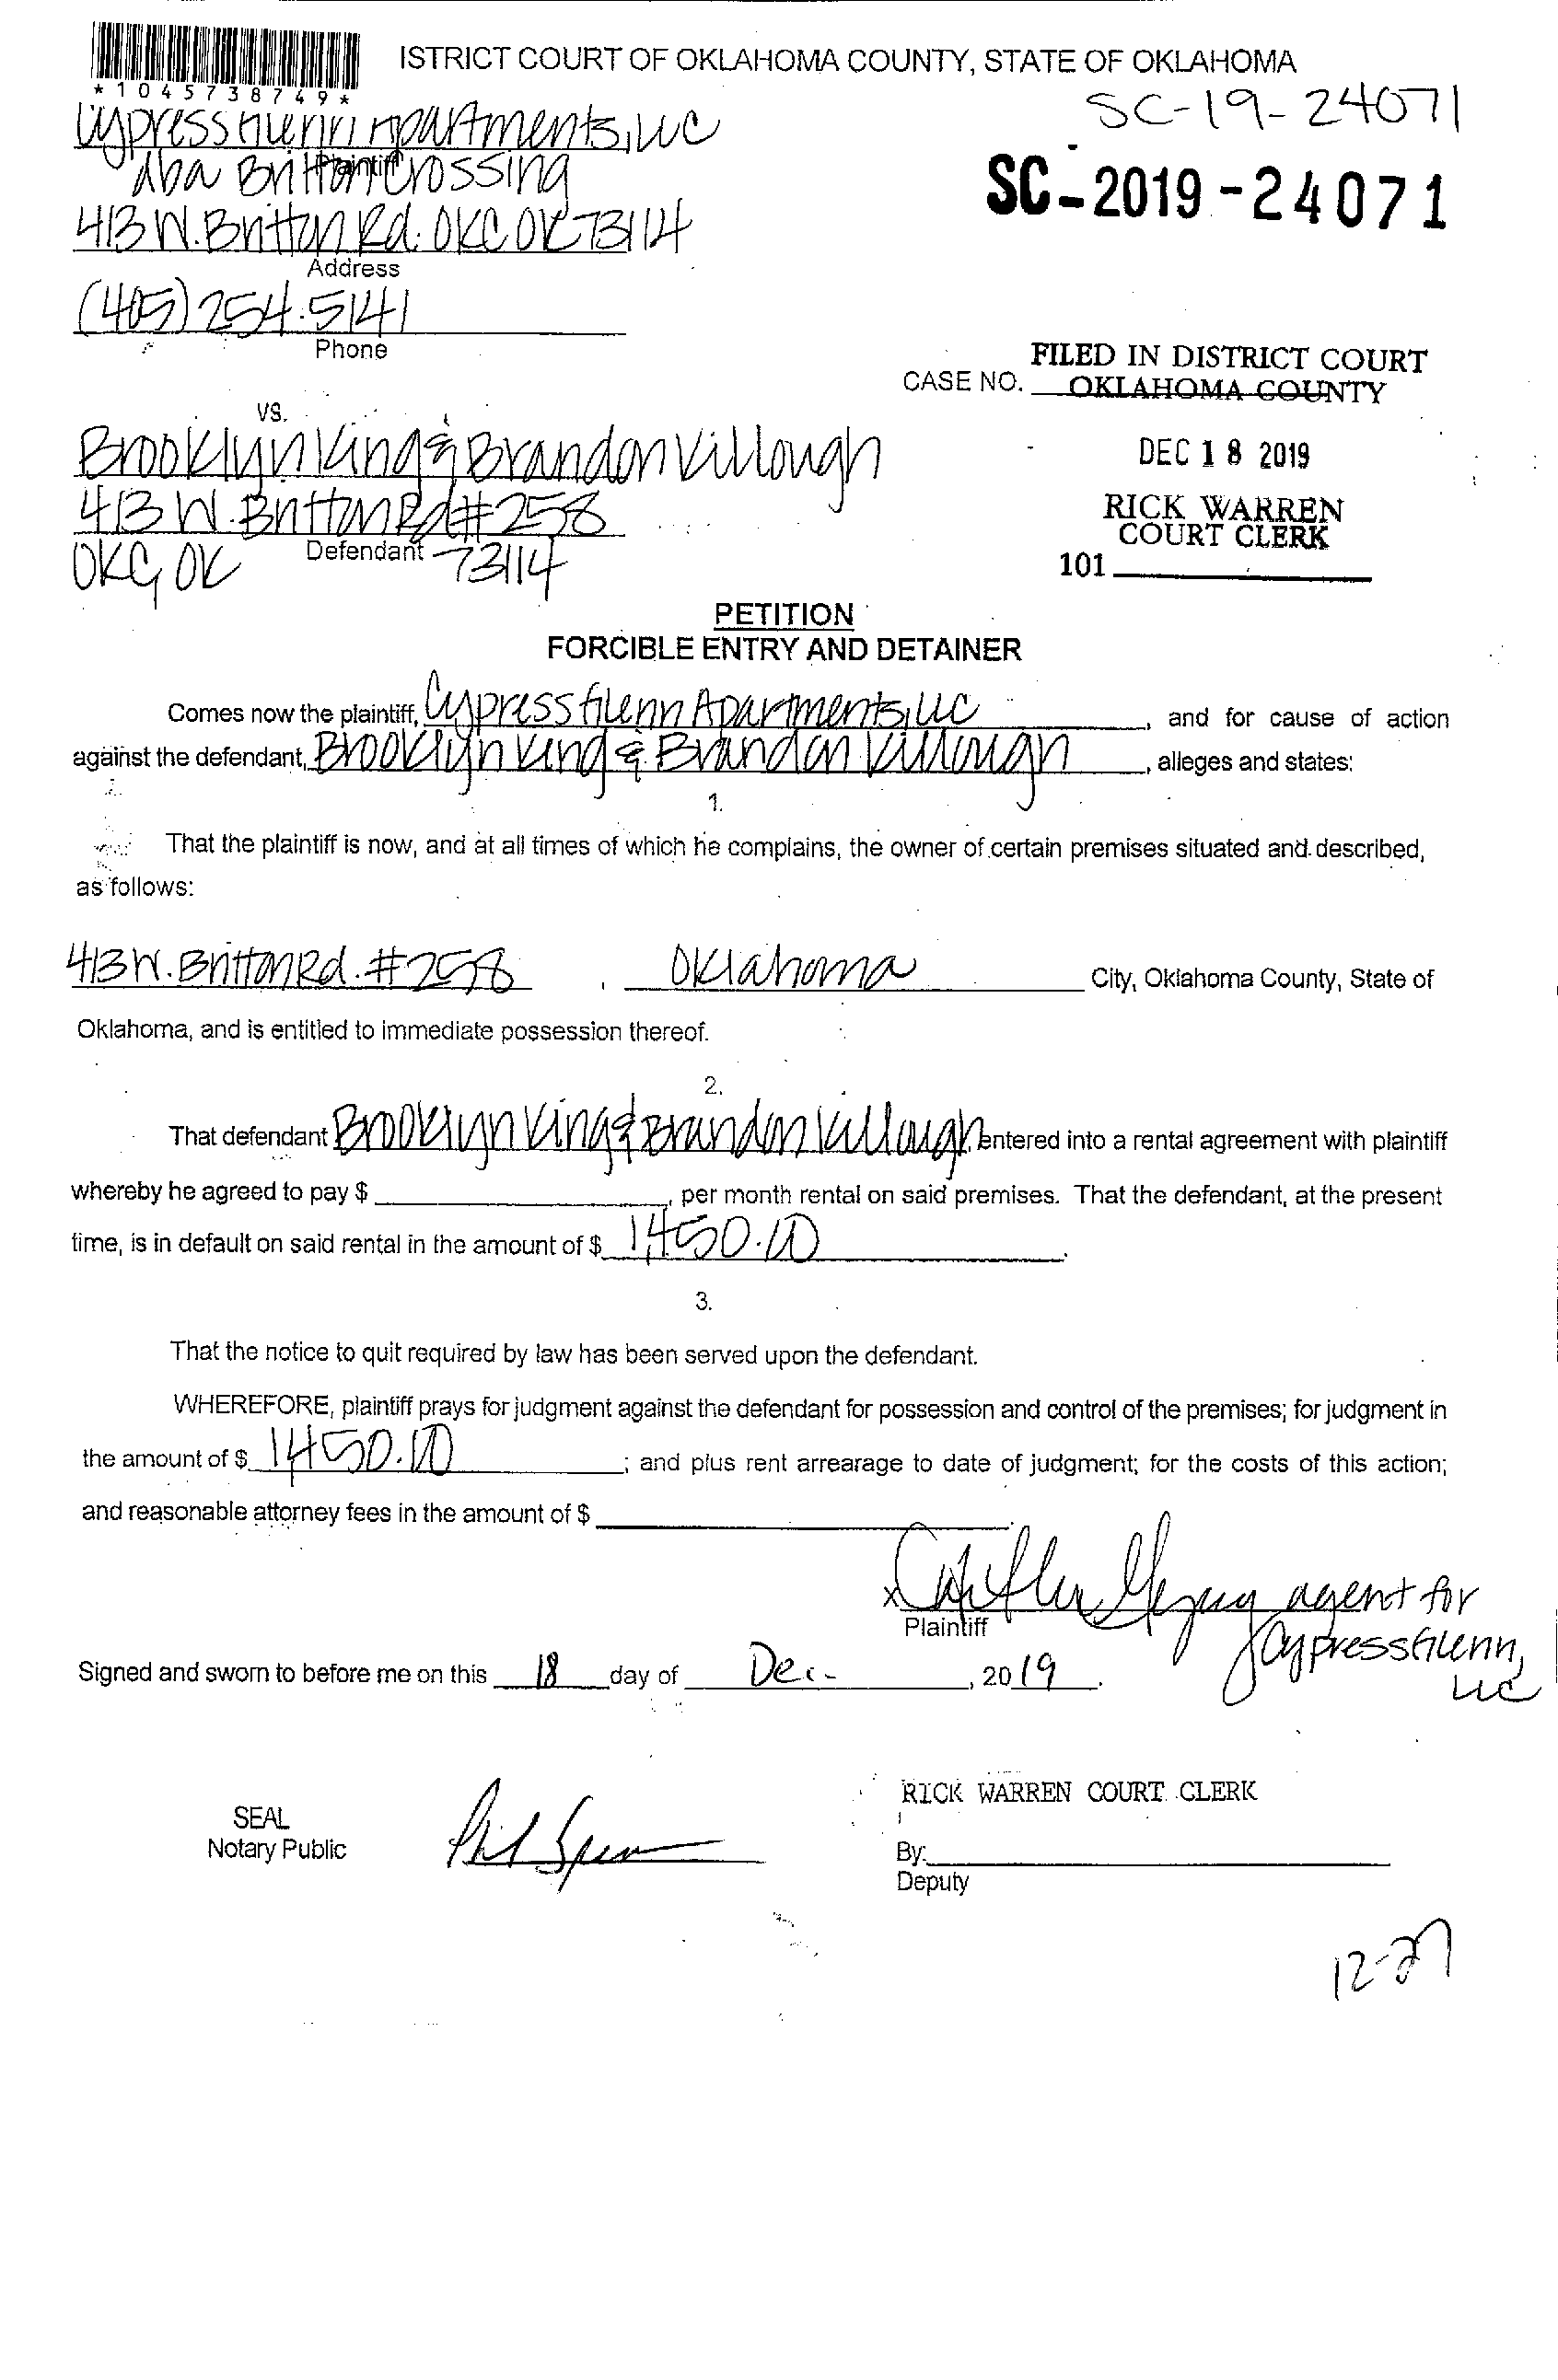 ISTRICT COURT OF OKLAHOMA COUNTY, STATE OF OKLAHOMA
*1045738749*
SC-19-24071
Cypress Glenn Apartments, LLC
dba Britton Crossing
Plaintiff
SC-2019-24071
413 W. Britton Rd. OKC OK 73114
Address
(405) 254.5141
Phone
FILED IN DISTRICT COURT
CASE NO. OKLAHOMA COUNTY
vs.
DEC 18 2019
Brooklyn King & Brandon Killough
413 W. Britton Rd #258
RICK WARREN
COURT CLERK
Defendant
OKC, OK 73114
101
PETITION
FORCIBLE ENTRY AND DETAINER
Comes now the plaintiff, Cypress Glenn Apartments, LLC, and for cause of action
against the defendant, Brooklyn King & Brandon Killough, alleges and states:
1.
That the plaintiff is now, and at all times of which he complains, the owner of certain premises situated and described,
as follows:
413 W. Britton Rd. #258, Oklahoma City, Oklahoma County, State of
Oklahoma, and is entitled to immediate possession thereof.
2.
That defendant Brooklyn King & Brandon Killough, entered into a rental agreement with plaintiff
whereby he agreed to pay $, per month rental on said premises. That the defendant, at the present
time, is in default on said rental in the amount of $ 1450.10.
3.
That the notice to quit required by law has been served upon the defendant.
WHEREFORE, plaintiff prays for judgment against the defendant for possession and control of the premises; for judgment in
the amount of $ 1450.10; and plus rent arrearage to date of judgment; for the costs of this action;
and reasonable attorney fees in the amount of $.
x agent for
Plaintiff
Cypress Glenn,
LLC
Signed and sworn to before me on this 18 day of Dec-, 2019.
RICK WARREN COURT CLERK
SEAL
Notary Public
By:
Deputy
12-27